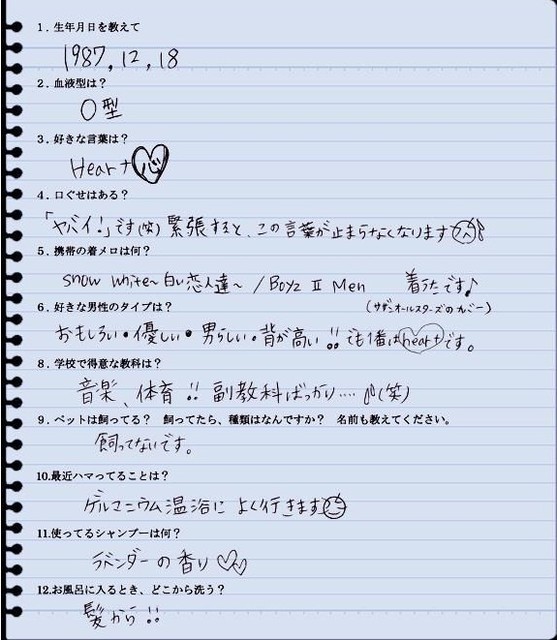 1. 生年月日を教えて
1987, 12, 18
2. 血液型は?
O型
3. 好きな言葉は?
Heart 心
4. 口ぐせはある?
「ヤバイ!」です(笑) 緊張すると、この言葉が止まらなくなります
5. 携帯の着メロは何?
snow white~白い恋人達~ / Boyz II Men 着うたです♪
(サザンオールスターズのカバー)
6. 好きな男性のタイプは?
おもしろい・優しい・男らしい・背が高い!! でも1番はheartです。
8. 学校で得意な教科は?
音楽、体育!! 副教科ばっかり…. (笑)
9. ペットは飼ってる? 飼ってたら、種類はなんですか? 名前も教えてください。
飼ってないです。
10.最近ハマってることは?
ゲルマニウム温浴に よく行きます
11.使ってるシャンプーは何?
ラベンダーの香り♡♡
12.お風呂に入るとき、どこから洗う?
髪から!!